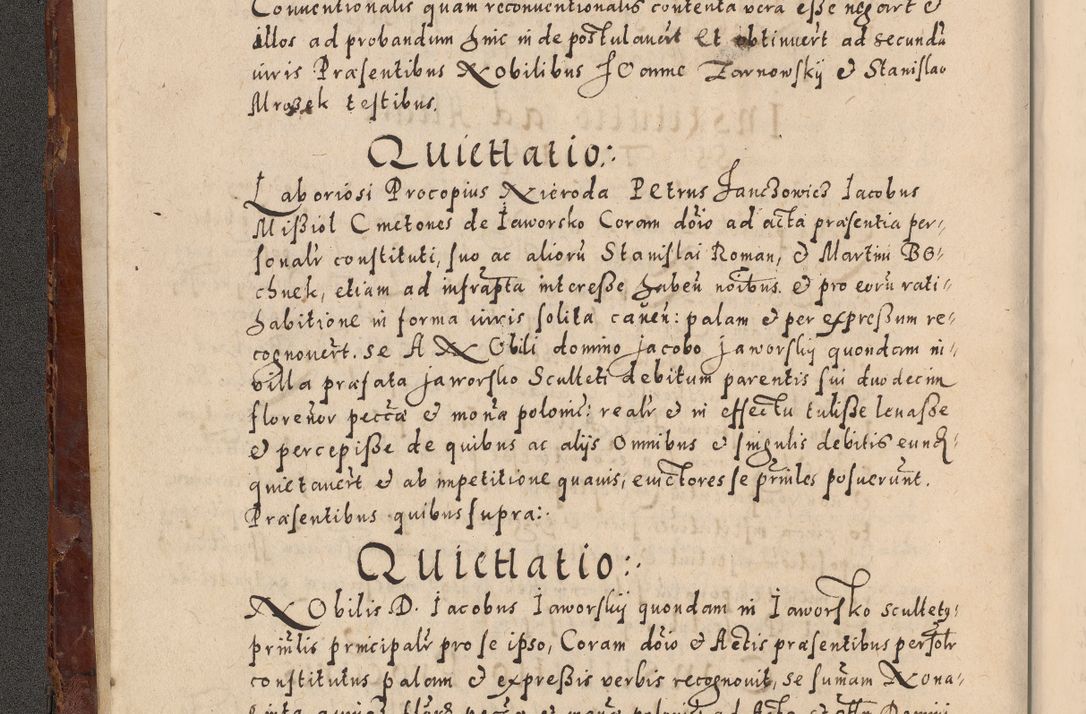 Conuentionalis quam reconuentionalis contenta vera eſse negart &
illos ad probandum hinc in de poſtulauert Et obtinuert ad secundā
iuris Præsentibus NObilibus JOanne Zarnowſkÿ & Staniſlao
Mrozek teſtibus.
QuiettatiO:
Laborioſi Procopius Nieroda PEtrus Janczowicz Iacobus
Miſziol Cmetones de Iaworsko Coram dōio ad acta præsentia per-
ſonalr conſtituti, ſuo ac aliorū Staniſlai Roman, & Martini BO-
chnek, etiam ad infraptā intereſse habeñ noibus. & pro eorū rati-
habitione in forma iuris ſolita caueñ: palam & per expreſsum re-
cognouert. se A NObili domino Jacobo Jaworſkÿ quondam in
villa præfata Jaworſko Sculteti debitum parentis ſui duodecim
florenor peccā & monā polonic: realr & in effectu tuliſse leuaſse
& percepiſse de quibus ac alijs Omnibus & ſingulis debitis eund-
quietauert & ab impetitione quauis, euictores se prñles poſuerunt.
Præſentibus quibus ſupra:
QuiettatiO:
NObilis D. Iacobus Iaworſkÿ quondam in IaworſkO scultety
prñlis principalr pro se ipso, Coram dōio & Actis præſentibus perſolr
conſtitutus palam & expreſsis verbis recognouit, se ſumam NOna-